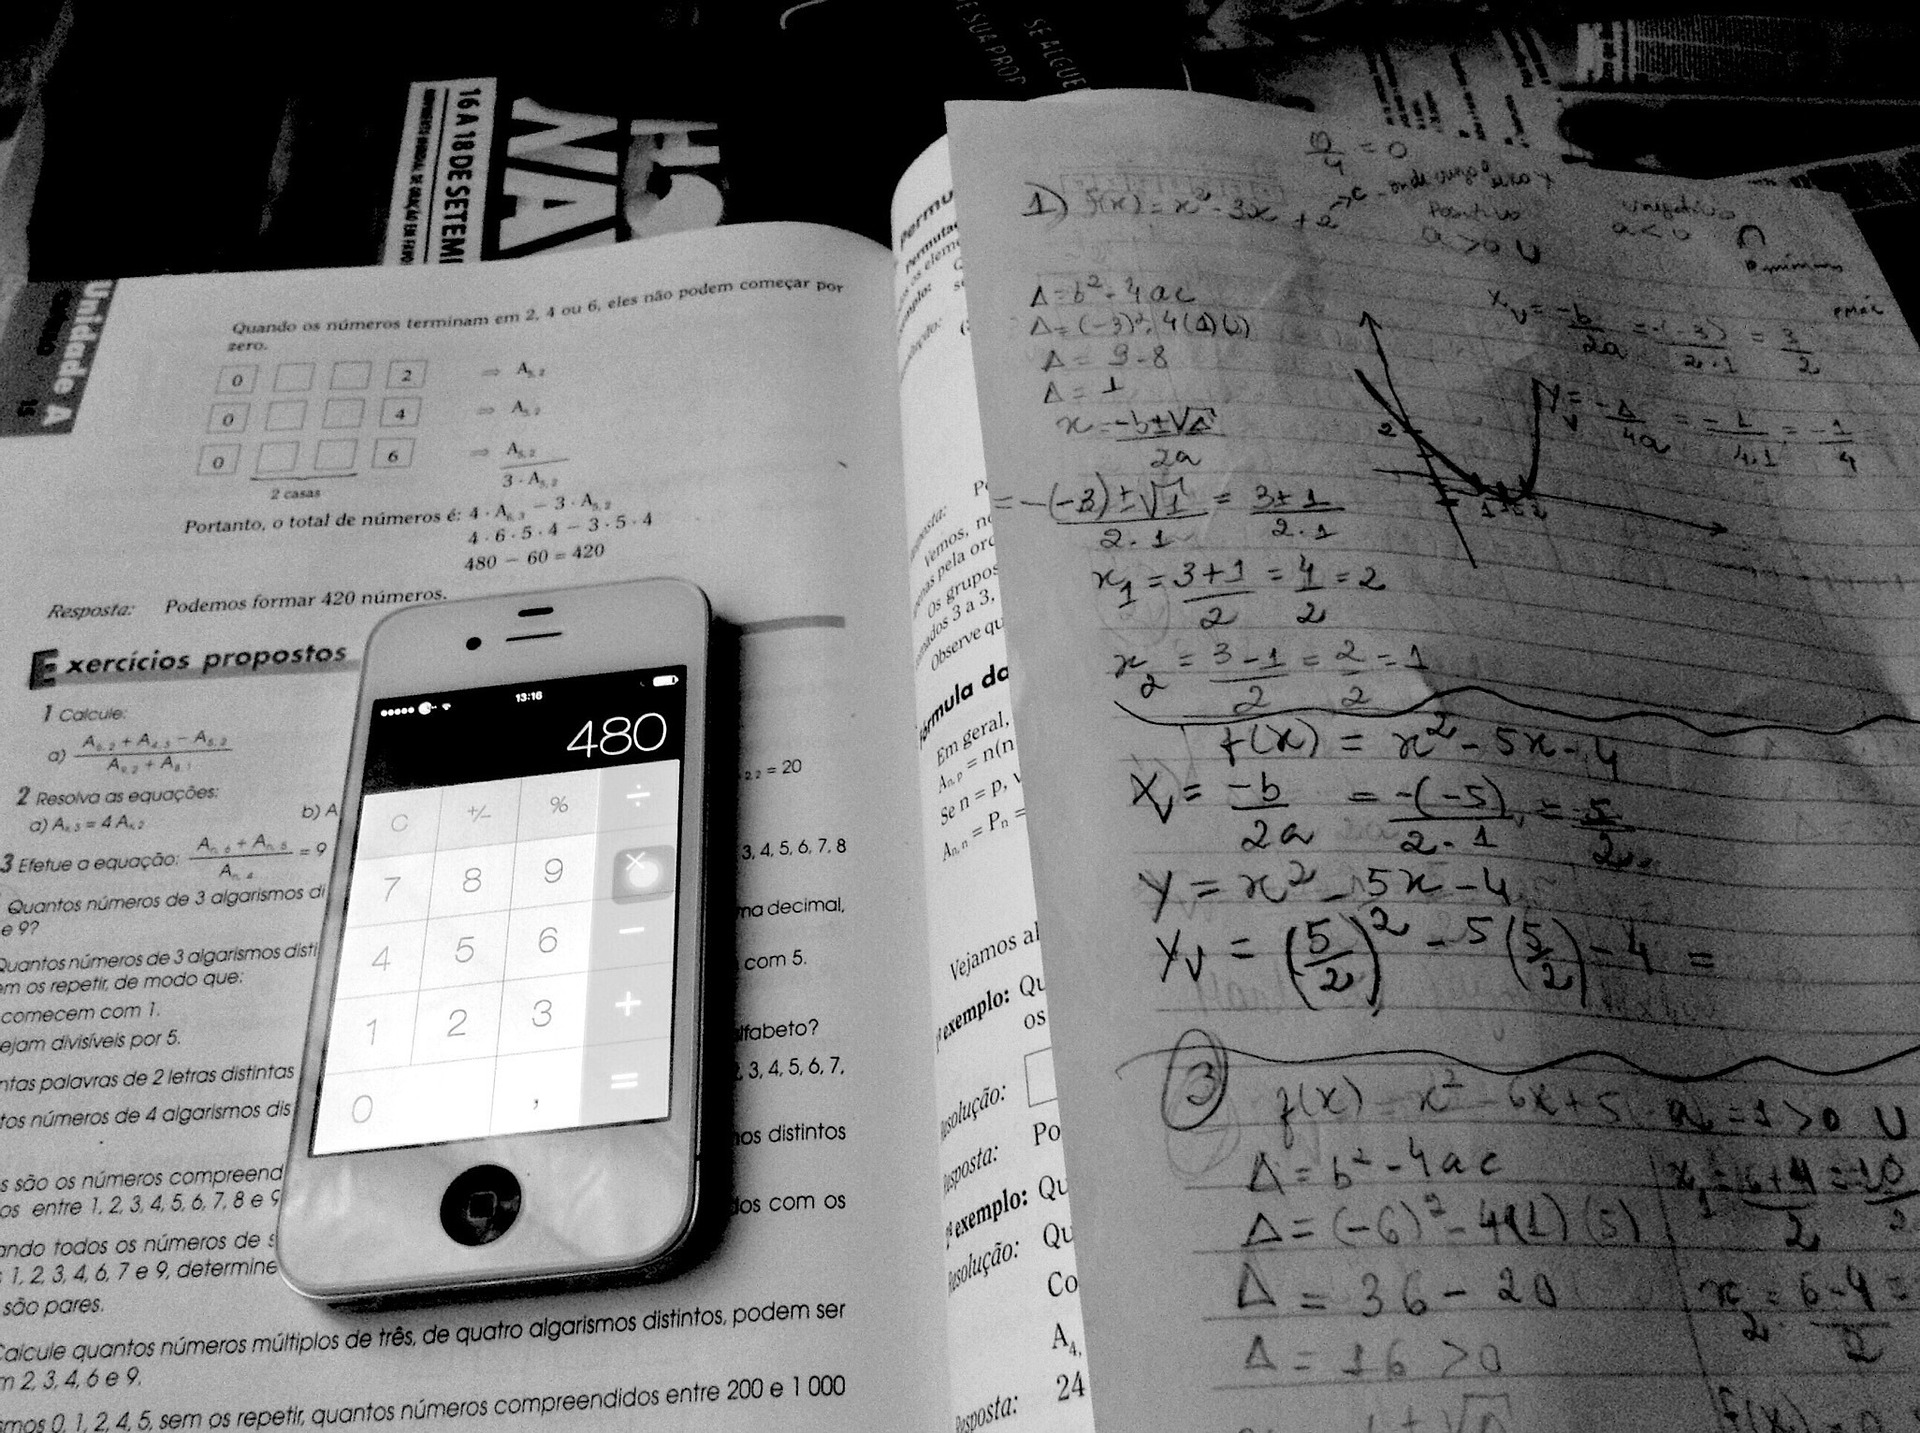 SEALGUE
E SUA PROP
16 A 18 DE SETEM
NA
Unidade A
15
Quando os números terminam em 2, 4 ou 6, eles não podem começar por
zero.
0 2 ⇒ A₅,₂
0 4 ⇒ A₅,₂
0 6 ⇒ A₅,₂
2 casas 3 · A₅,₂
Portanto, o total de números é: 4 · A₆,₃ − 3 · A₅,₂
4 · 6 · 5 · 4 − 3 · 5 · 4
480 − 60 = 420
Resposta: Podemos formar 420 números.
Exercícios propostos
1 Calcule:
a)
2 Resolva as equações:
a) b) A
3 Efetue a equação: = 9
Quantos números de 3 algarismos di
e 9?
Quantos números de 3 algarismos disti
em os repetir, de modo que:
comecem com 1.
ejam divisíveis por 5.
ntas palavras de 2 letras distintas
tos números de 4 algarismos dis
s são os números compreend
os entre 1, 2, 3, 4, 5, 6, 7, 8 e 9
ando todos os números de s
1, 2, 3, 4, 6, 7 e 9, determine
são pares.
Calcule quantos números múltiplos de três, de quatro algarismos distintos, podem ser
m 2, 3, 4, 6 e 9.
smos 0, 1, 2, 4, 5, sem os repetir, quantos números compreendidos entre 200 e 1 000
= 20
3, 4, 5, 6, 7, 8
ma decimal,
com 5.
lfabeto?
3, 4, 5, 6, 7,
os distintos
dos com os
13:16
480
C +/- % ÷
7 8 9 ×
4 5 6 −
1 2 3 +
0 , =
Permu
Permutaç
os elem
emplo:
Vemos, no
enas pela ord
Os grupos
mados 3 a 3,
Observe qu
Fórmula da
Em geral,
Aₙ,ₚ = n(n
Se n = p, v
Aₙ,ₙ = Pₙ =
Vejamos al
1º exemplo: Qu
os
Resolução:
Resposta: Po
2º exemplo: Qu
Resolução: Qu
Co
A₄,
Resposta: 24
1) f(x) = x² - 3x + 2
a > 0 U
a < 0 ∩
Δ = b² - 4ac
Δ = (-3)² - 4(1)(2)
Δ = 9 - 8
Δ = 1
x = -b±√Δ / 2a
= -(-3)±√1 / 2·1 = 3±1 / 2·1
x₁ = 3+1 / 2 = 4/2 = 2
x₂ = 3-1 / 2 = 2/2 = 1
Xv = -b/2a = -(-3) / 2·1 = 3/2
Yv = -Δ/4a = -1/4·1 = -1/4
2
f(x) = x² - 5x - 4
Xv = -b/2a = -(-5) / 2·1 = 5/2
Y = x² - 5x - 4
Yv = (5/2)² - 5(5/2) - 4 =
3 f(x) = x² - 6x + 5 a = 1 > 0 U
Δ = b² - 4ac
Δ = (-6)² - 4(1)(5)
Δ = 36 - 20
Δ = 16 > 0
x₁ = 6+4 / 2 = 10/2
x₂ = 6-4 / 2 =